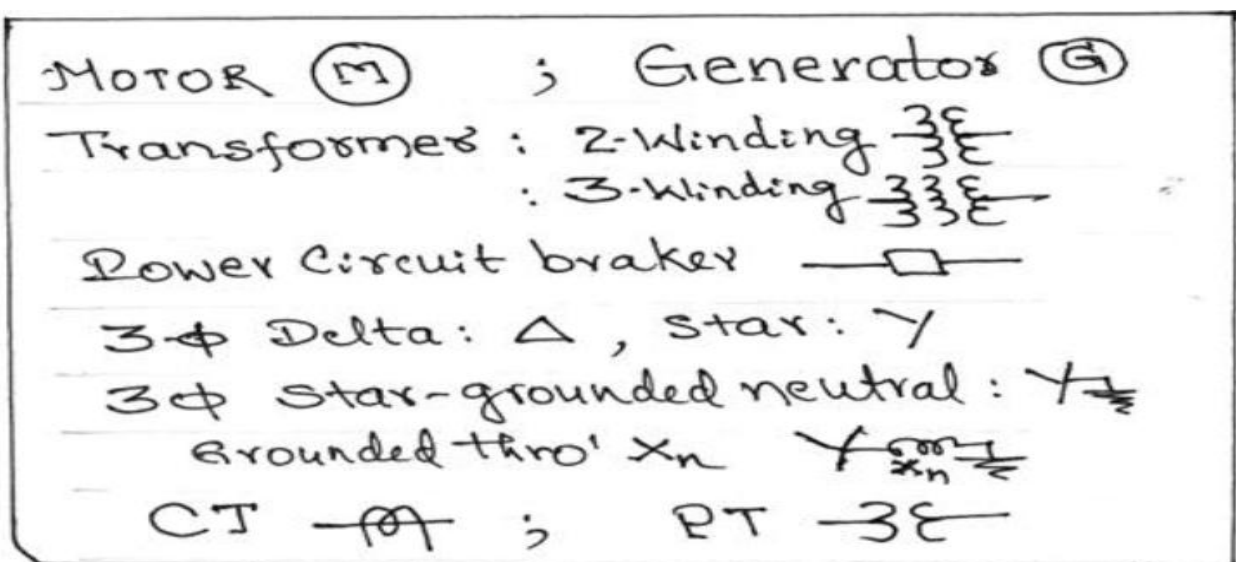 MOTOR M ; Generator G
Transformer : 2-Winding
: 3-Winding
Power Circuit braker
3-ϕ Delta: Δ, Star: Y
3ϕ Star-grounded neutral: Y
Grounded thro' Xn Y Xn
CT ; PT